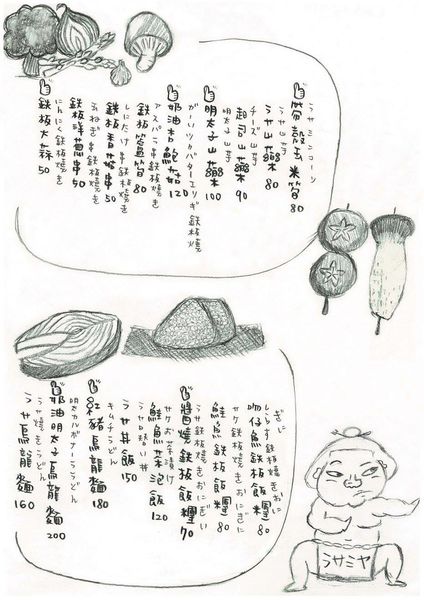 ラサミンコーン
筍殼玉米筍 80
ラサ山芋
ラサ山藥 80
チーズ山芋
起司山藥 90
明太子山芋
明太子山藥木 100
ガーリックバターエリンギ鉄板焼
奶油杏鮑菇 120
アスパラ串鉄板焼き
鉄板蘆筍 80
しいたけ串鉄板焼き
鉄板香菇串 50
玉ねぎ串鉄板焼き
鉄板洋蔥串 50
にんにく鉄板焼き
鉄板大蒜 50
しらす鉄板焼きおに
ぎに
吻仔魚鉄板飯糰 80
サケ鉄板焼きおにぎに
鮭魚鉄板飯糰 80
ラサ鉄板焼きおにぎい
醬燒鉄板飯糰 70
サケお茶漬け
鮭魚茶泡飯 120
ラサ丼飯 150
キムチうどん
紅豬烏龍麵 180
明太カルボナーラうどん
奶油明太子烏龍麵 200
ラサ焼きうどん
ラサ烏龍麵 160
ラサミヤ